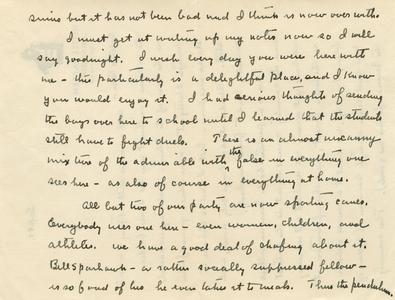 sinus but it has not been bad and I think is now over with.
I must get at writing up my notes now so I will
say goodnight. I wish every day you were here with
me – this particularly is a delightful place, and I know
you would enjoy it. I had serious thoughts of sending
the boys over here to school until I learned that the students
still have to fight duels. There is an almost uncanny
mixture of the admirable with the false in everything one
sees here – as also of course in everything at home.
All but two of our party are now sporting canes.
Everybody uses one here – even women, children, and
athletes. We have a good deal of chafing about it.
Bill Sparhawk – a rather socially suppressed fellow –
is so fond of his he even takes it to meals. Thus the pendulum